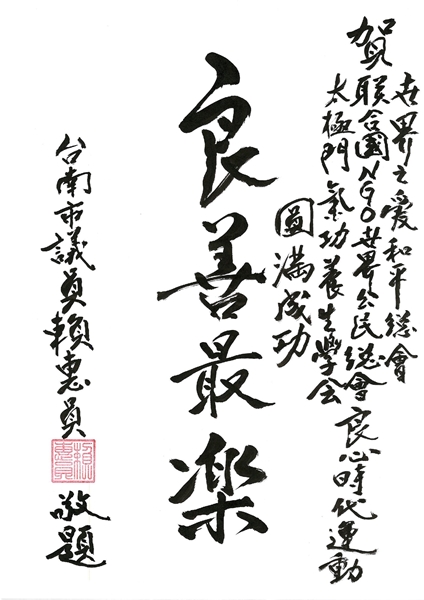 賀
世界之愛和平總會
聯合國NGO世界公民總會
太極門氣功養生學会
良心時代運動
圓滿成功
良善最楽
台南市議員賴惠員
賴惠員
敬題